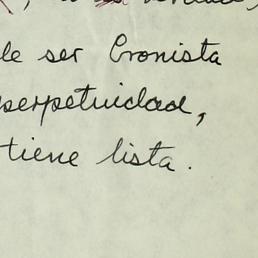 de ser Cronista
perpetuidad,
tiene lista.